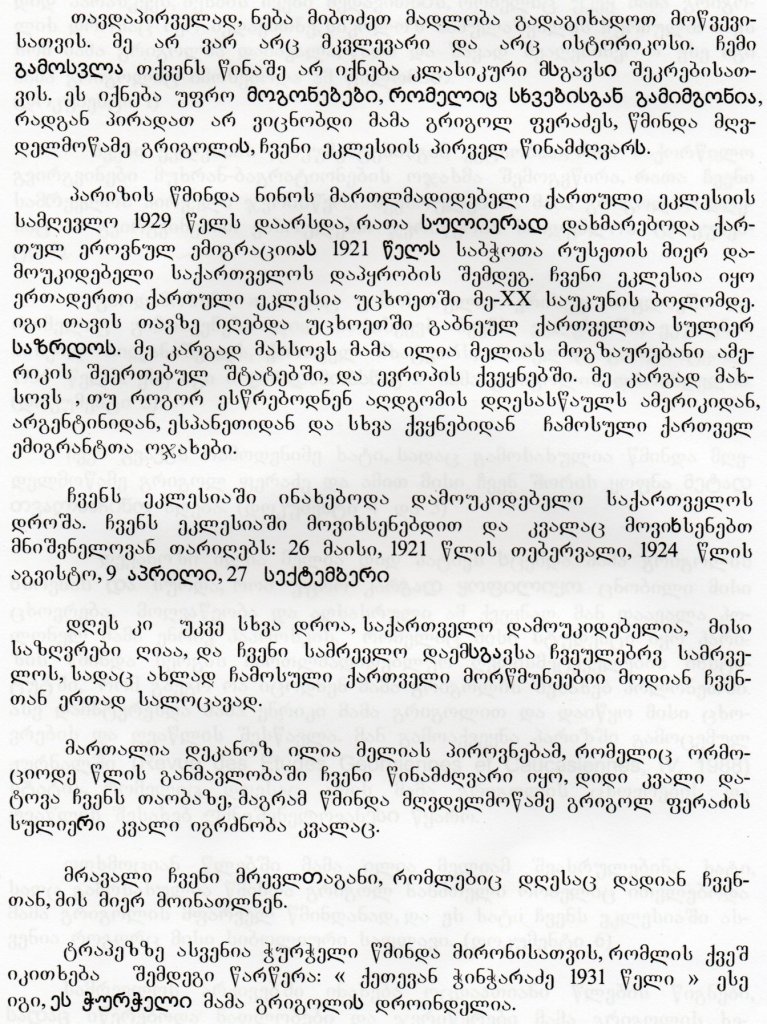 თავდაპირველად, ნება მიბოძეთ მადლობა გადაგიხადოთ მოწვევი-
სათვის. მე არ ვარ არც მკვლევარი და არც ისტორიკოსი. ჩემი
გამოსვლა თქვენს წინაშე არ იქნება კლასიკური მსგავსი შეკრებისათ-
ვის. ეს იქნება უფრო მოგონებები, რომელიც სხვებისგან გამიმგონია,
რადგან პირადათ არ ვიცნობდი მამა გრიგოლ ფერაძეს, წმინდა მღვ-
დელმოწამე გრიგოლის, ჩვენი ეკლესიის პირველ წინამძღვარს.
პარიზის წმინდა ნინოს მართლმადიდებელი ქართული ეკლესიის
სამღევლო 1929 წელს დაარსდა, რათა სულიერად დახმარებოდა ქარ-
თულ ეროვნულ ემიგრაციიას 1921 წელს საბჭოთა რუსეთის მიერ და-
მოუკიდებელი საქართველოს დაპყრობის შემდეგ. ჩვენი ეკლესია იყო
ერთადერთი ქართული ეკლესია უცხოეთში მე-XX საუკუნის ბოლომდე.
იგი თავის თავზე იღებდა უცხოეთში გაბნეულ ქართველთა სულიერ
საზრდოს. მე კარგად მახსოვს მამა ილია მელიას მოგზაურებანი ამე-
რიკის შეერთებულ შტატებში, და ევროპის ქვეყნებში. მე კარგად მახ-
სოვს , თუ როგორ ესწრებოდნენ აღდგომის დღესასწაულს ამერიკიდან,
არგენტინიდან, ესპანეთიდან და სხვა ქვყნებიდან ჩამოსული ქართველ
ემიგრანტთა ოჯახები.
ჩვენს ეკლესიაში ინახებოდა დამოუკიდებელი საქართველოს
დროშა. ჩვენს ეკლესიაში მოვიხსენებდით და კვალაც მოვიხსენებთ
მნიშვნელოვან თარიღებს: 26 მაისი, 1921 წლის თებერვალი, 1924 წლის
აგვისტო, 9 აპრილი, 27 სექტემბერი
დღეს კი უკვე სხვა დროა, საქართველო დამოუკიდებელია, მისი
საზღვრები ღიაა, და ჩვენი სამრევლო დაემსგავსა ჩვეულებრვ სამრვე-
ლოს, სადაც ახლად ჩამოსული ქართველი მორწმუნეებიი მოდიან ჩვენ-
თან ერთად სალოცავად.
მართალია დეკანოზ ილია მელიას პიროვნებამ, რომელიც ორმო-
ციოდე წლის განმავლობაში ჩვენი წინამძღვარი იყო, დიდი კვალი და-
ტოვა ჩვენს თაობაზე, მაგრამ წმინდა მღვდელმოწამე გრიგოლ ფერაძის
სულიერი კვალი იგრძნობა კვალაც.
მრავალი ჩვენი მრევლთაგანი, რომლებიც დღესაც დადიან ჩვენ-
თან, მის მიერ მოინათლნენ.
ტრაპეზზე ასვენია ჭურჭელი წმინდა მირონისათვის, რომლის ქვეშ
იკითხება შემდეგი წარწერა: « ქეთევან ჭინჭარაძე 1931 წელი » ესე
იგი, ეს ჭურჭელი მამა გრიგოლის დროინდელია.